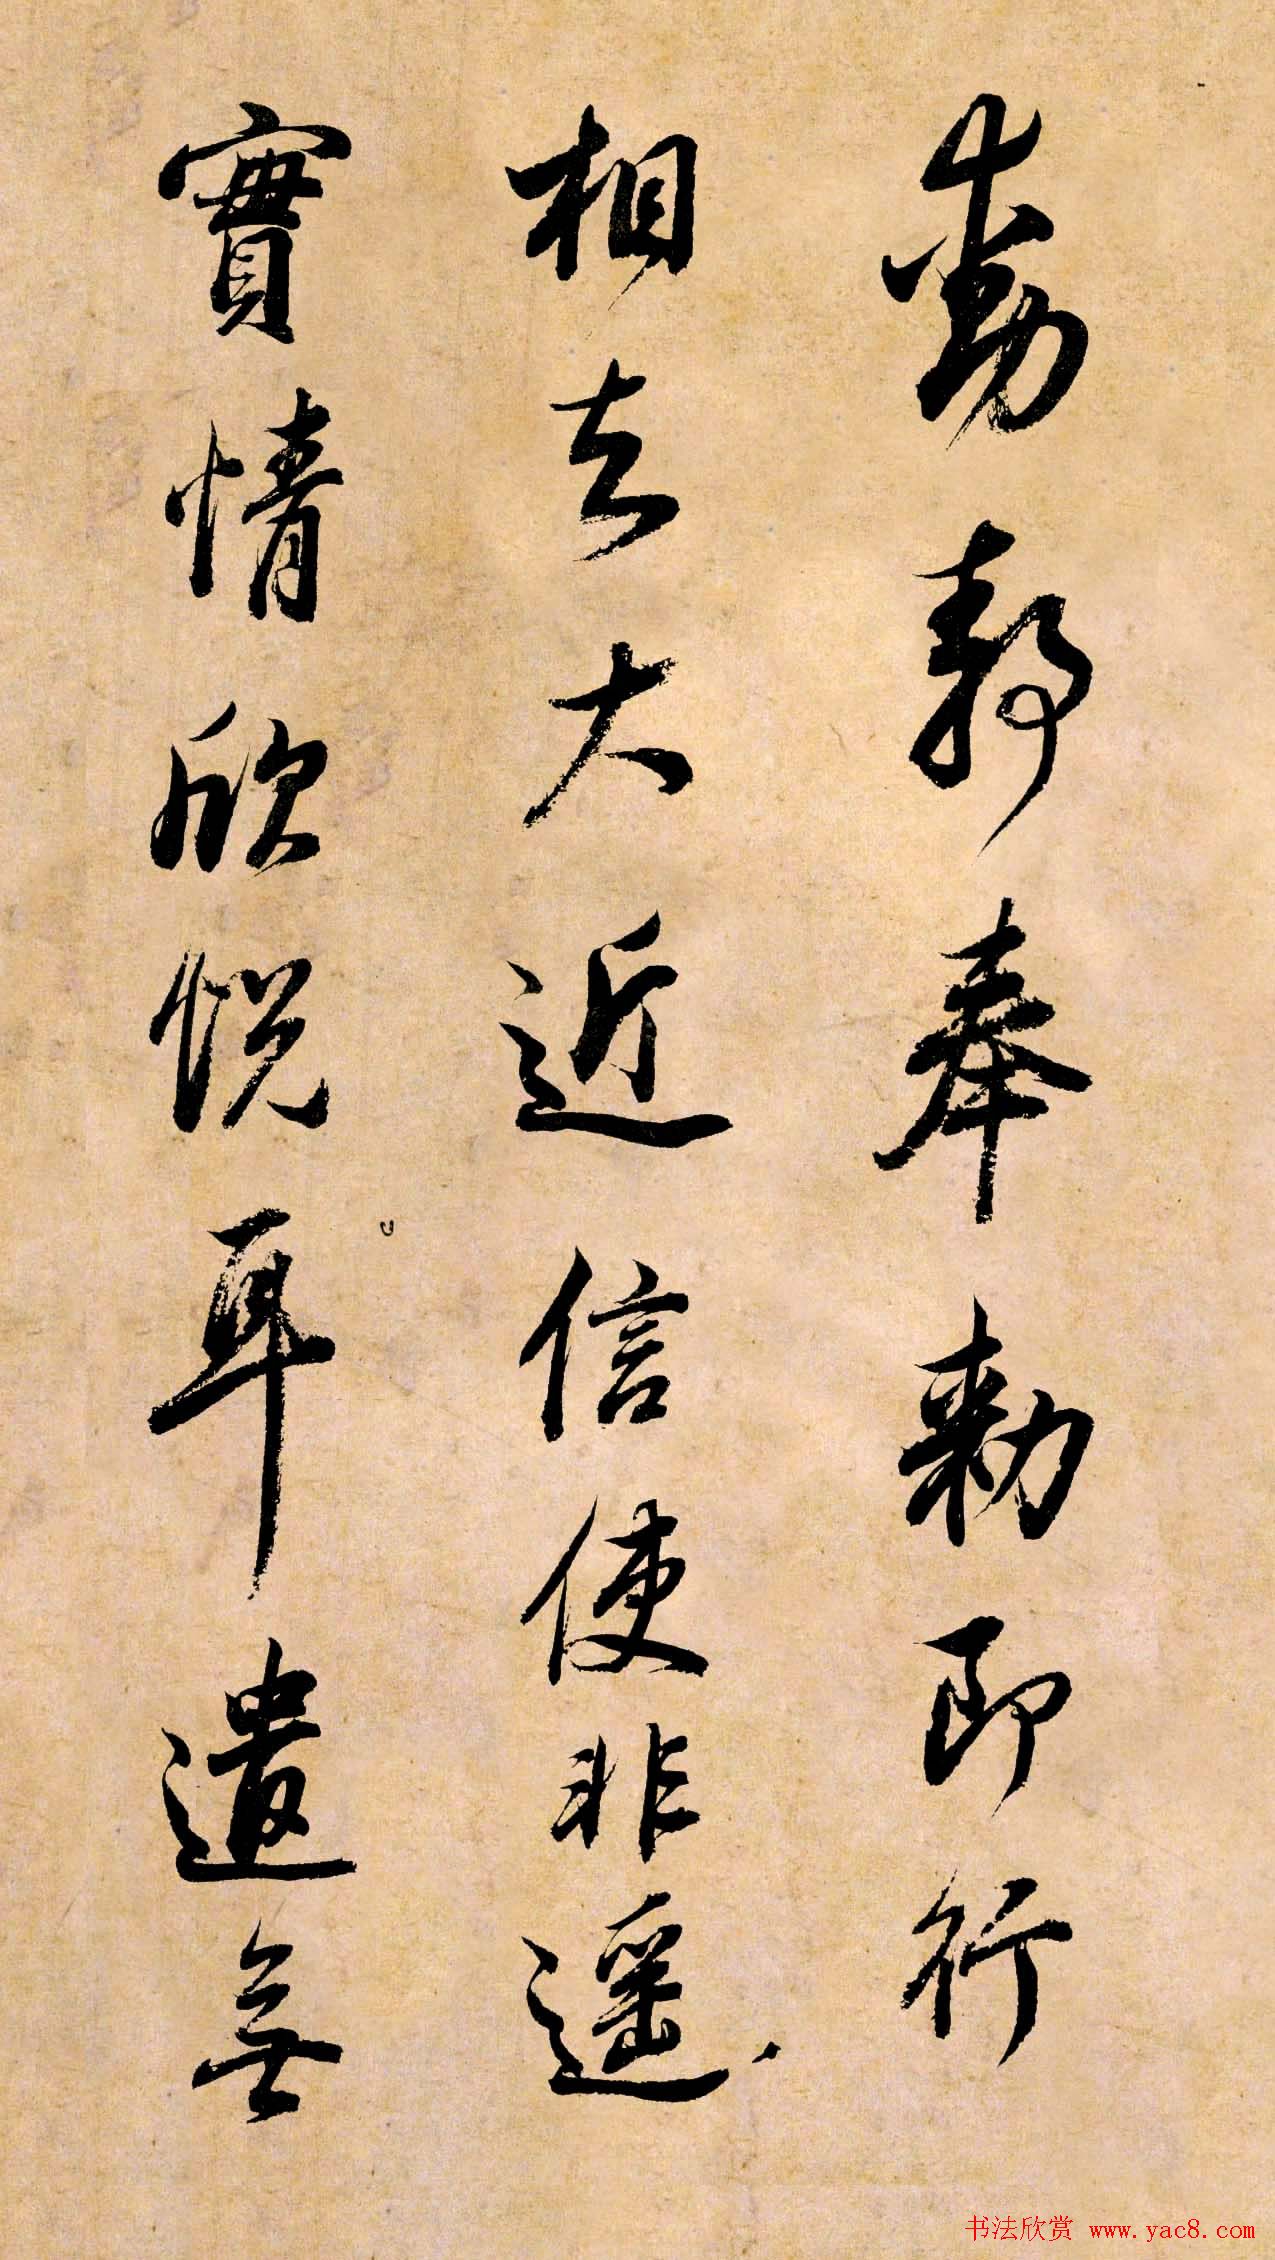 動静奉勑即行
相去大近信使非遥
實情欣悦耳遣無
书法欣赏 www.yac8.com